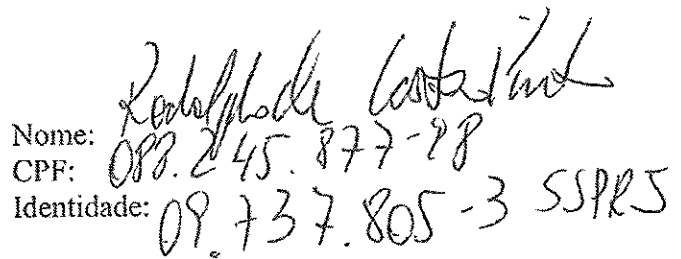 Nome: Rodolpho de Castro
CPF: 088.245.877-28
Identidade: 09.737.805-3 SSPRJ